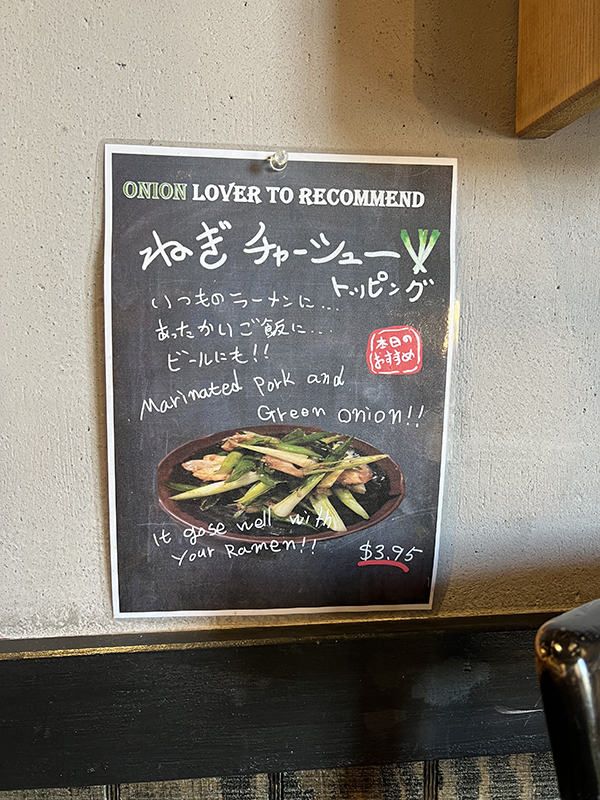 ONION LOVER TO RECOMMEND
ねぎ チャーシュー
トッピング
いつものラーメンに...
あったかいご飯に...
ビールにも!!
本日の
おすすめ
Marinated Pork and
Green onion!!
It gose well with
your Ramen!!
$3.95